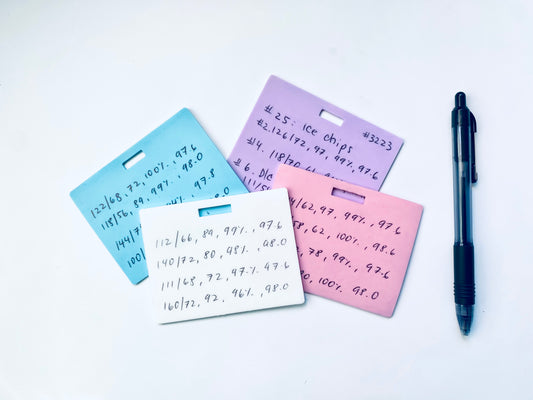 # 25: Ice chips
#3223
#2.126/72, 97, 99%, 97.6
#4. 118/70
#6. D/c
111/5
122/68, 72, 100%, 97.6
118/56, 89, 99%. 98.0
144/7 97.8
100/
4/62, 97, 99%, 97.6
58, 62, 100%, 98.6
78, 99%, 97.6
80, 100%. 98.0
112/66, 89, 99%, 97.6
140/72, 80, 98%. 98.0
111/68, 72, 97% 97.6
160/72, 92, 96%, 98.0